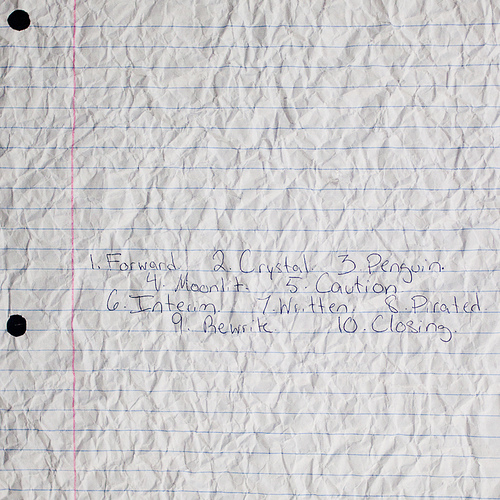 1. Forward. 2. Crystal. 3. Penguin.
4. Moonlit. 5. Caution
6. Interim. 7. Written. 8. Pirated
9. Rewrite 10. Closing.